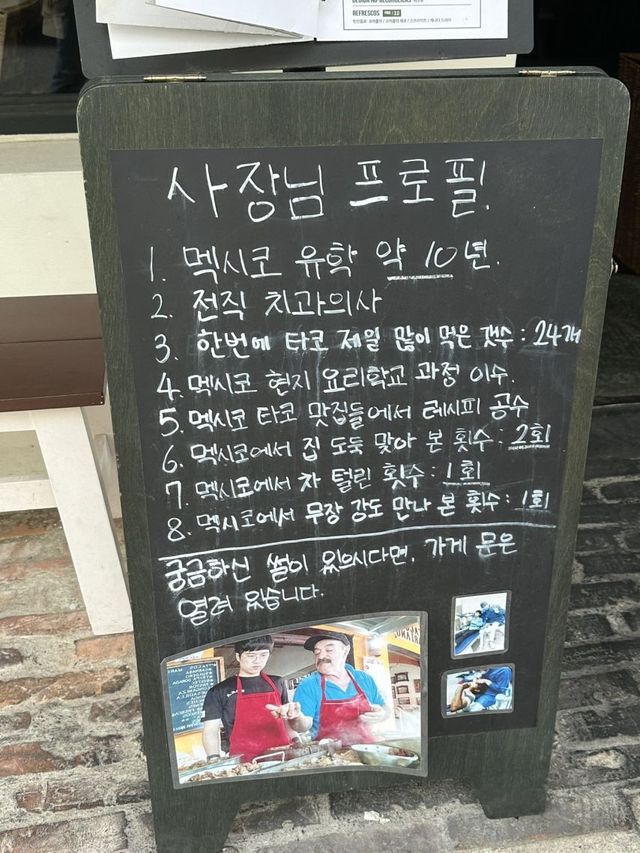 REFRESCOS
사장님 프로필
1. 멕시코 유학 약 10년.
2. 전직 치과의사
3. 한번에 타코 제일 많이 먹은 갯수 : 24개
4. 멕시코 현지 요리학교 과정 이수.
5. 멕시코 타코 맛집들에서 레시피 공수
6. 멕시코에서 집 도둑 맞아 본 횟수 : 2회
7. 멕시코에서 차 털린 횟수 : 1회
8. 멕시코에서 무장 강도 만나 본 횟수 : 1회
궁금하신 썰이 있으시다면, 가게 문은
열려 있습니다.